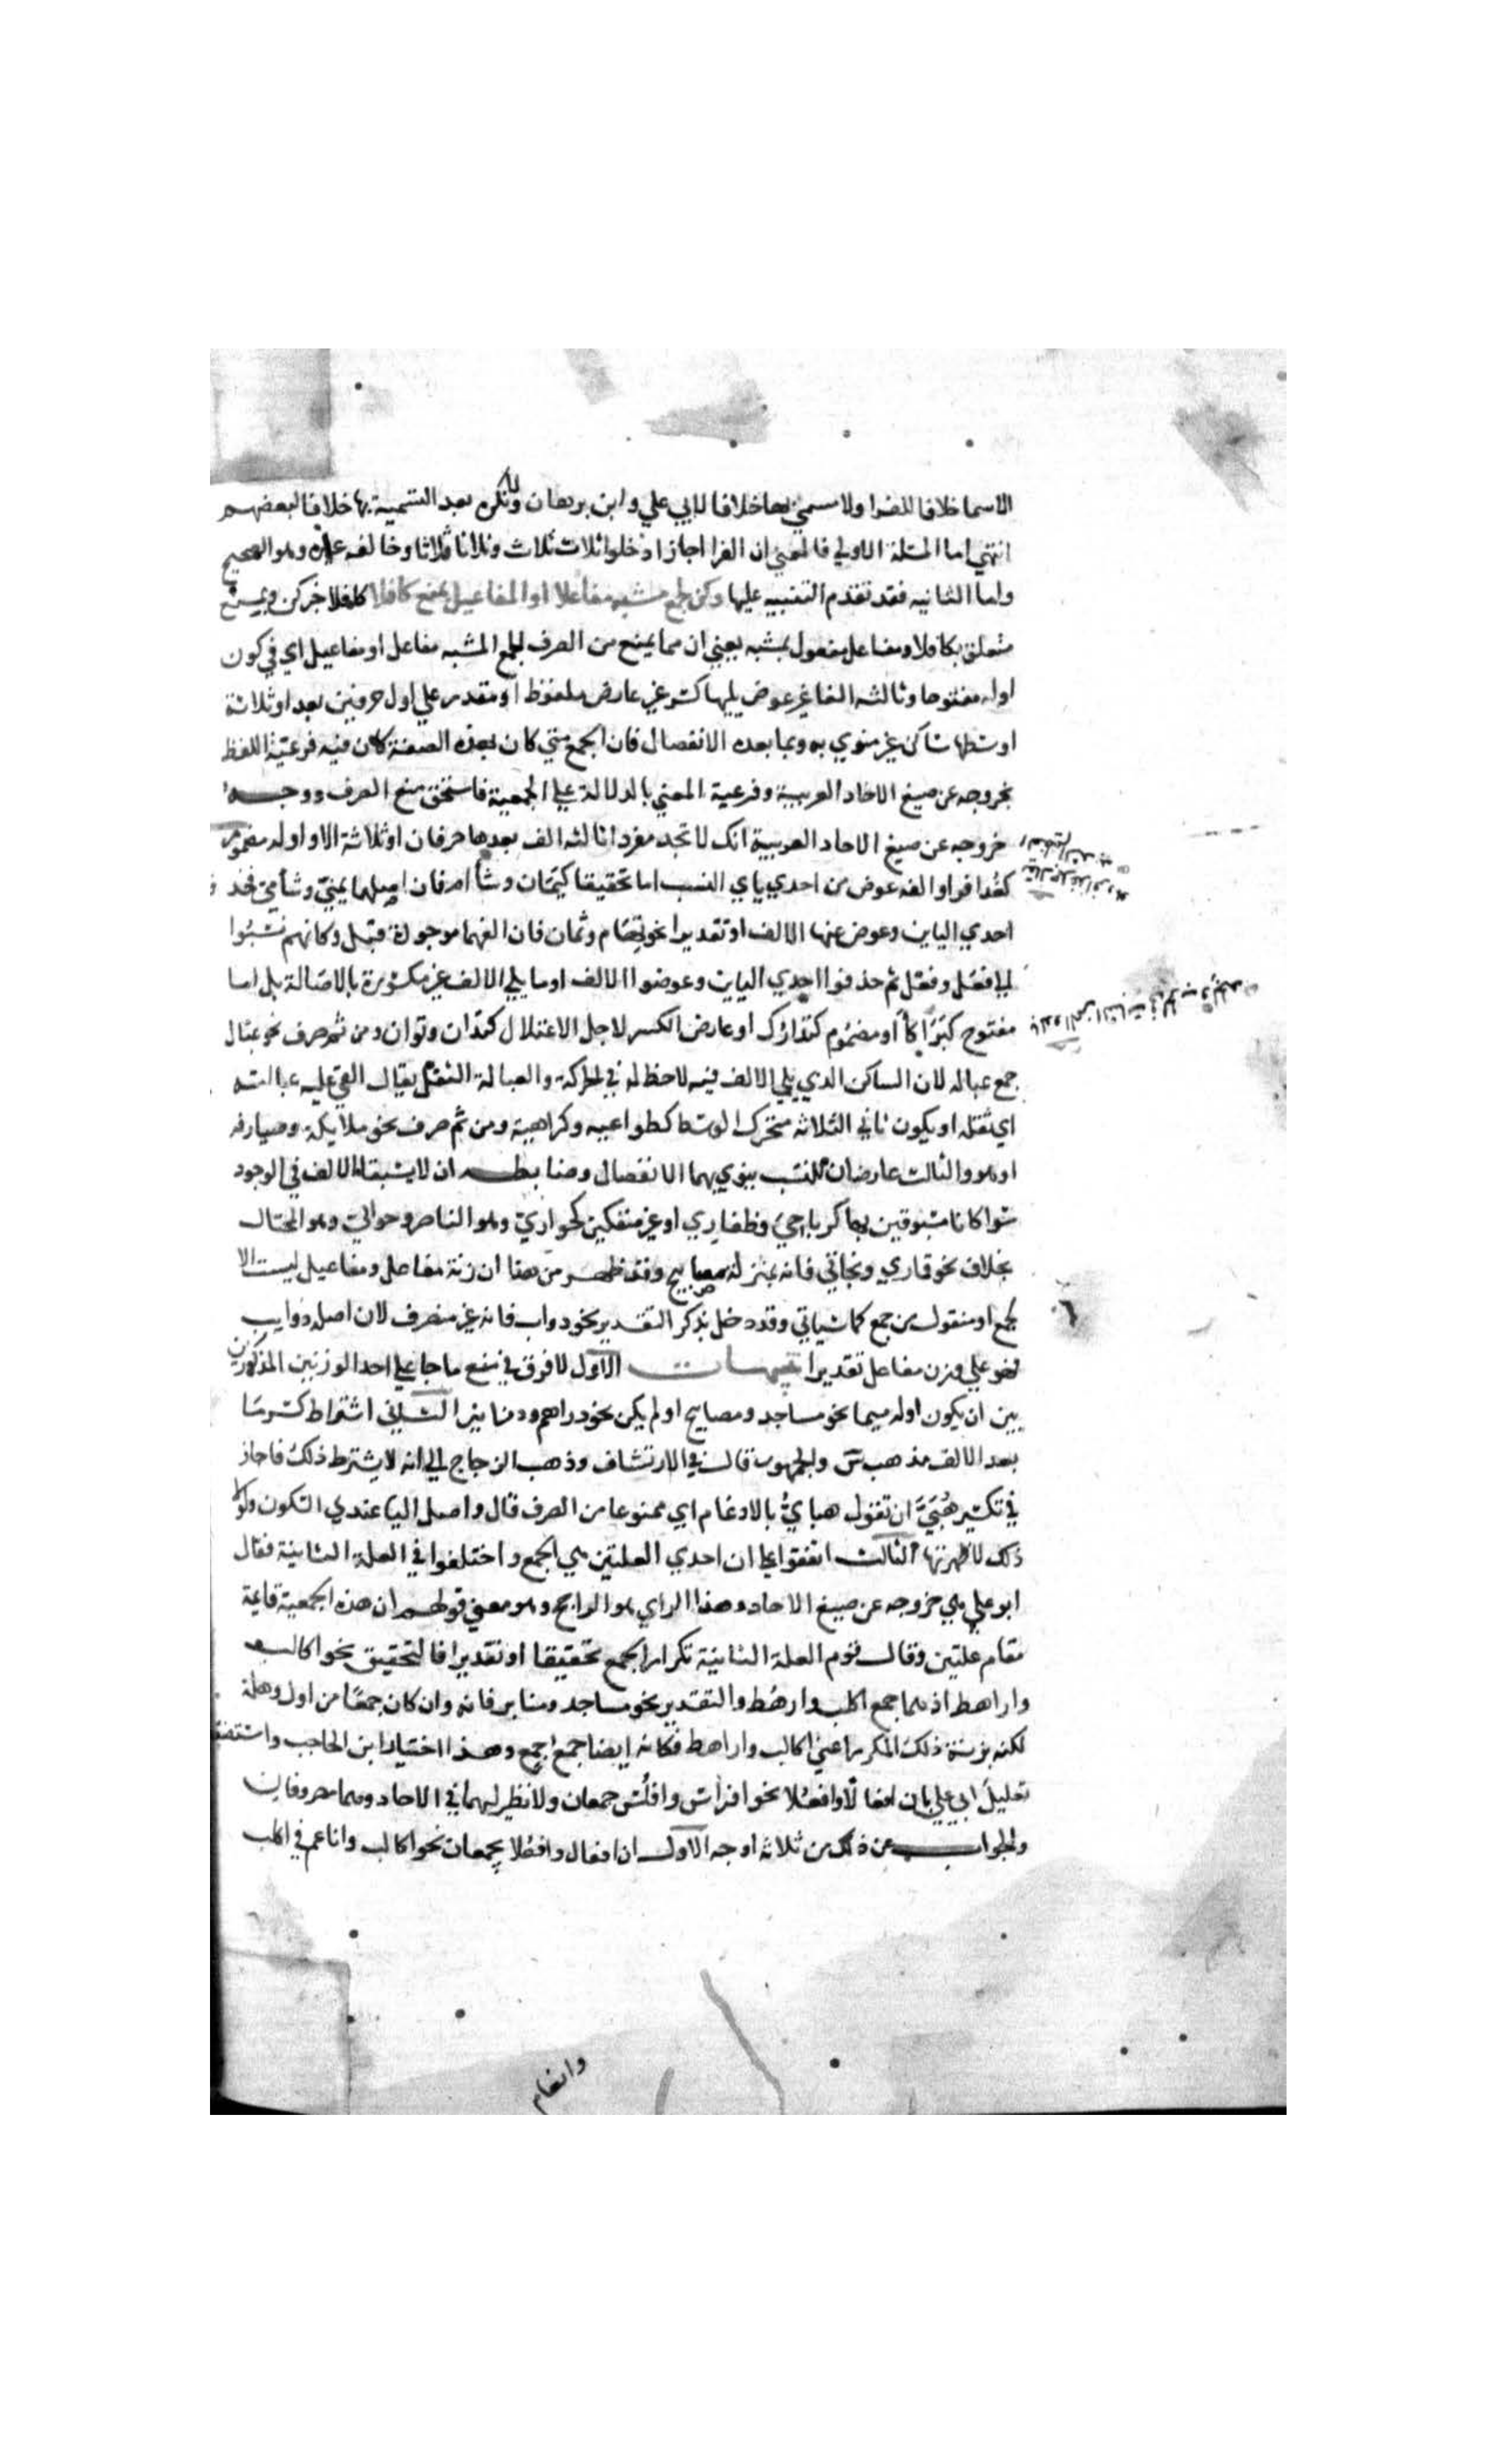 الاسما خلافا للفرا ولا مسمي بها خلافا لابي علي وابن برهان ولا منكره بعد التسمية بها خلافا لبعضهم
انتهي اما المسئلة الاولي فالمعني ان الفرا اجاز ادخلوا ثلاث ثلاث وثلاثا ثلاثا وخالفه غيره وهو الصحيح
واما الثانيه فقد تقدم التنبيه عليها وكن لجمع مشبه مفاعلا او المفاعيل بمنع كافلا كافلا خبر كن وبمنع
متعلق بكافلا ومفاعل مفعول بمشبه يعني ان مما يمنع من الصرف الجمع المشبه مفاعل او مفاعيل اي في كون
اوله مفتوحا وثالثه الفا غير عوض يليها كسر غير عارض ملفوظ او مقدر علي اول حرفين بعد او ثلاثة
اوسطها ساكن غير منوي به وبما بعده الانفصال فان الجمع متي كان بهذه الصفة كان فيه فرعية اللفظ
بخروجه عن صيغ الاحاد العربية وفرعية المعني بالدلالة علي الجمعية فاستحق منع الصرف ووجه
خروجه عن صيغ الاحاد العربية انك لا تجد مفردا ثالثه الف بعدها حرفان او ثلاثة الا واوله مضموم
كعُذافر او الفه عوض من احدي يائي النسب اما تحقيقا كيمان وشآم فان اصلهما يمنيّ وشأميّ فحذ ف
احدي اليائين وعوض عنها الالف او تقديرا نحو تهام وثمان فان الفهما موجودة قبل وكانهم نسبُوا
الي فعَل وفعْل ثم حذفوا احدي اليائين وعوضوا الالف او ما يلي الالف غير مكسُورة بالاصَالة بل اما
مفتوح كبَرَاكا او مضمُوم كتدَارُك او عارض الكسر لاجل الاعتلال كتدَان وتوَان ومن ثم صرف نحو عبَال
جمع عباله لان الساكن الذي يلي الالف فيه لا حظ له في الحركة والعبالة الثقل يقال القي عليه عبالته
اي ثقله او يكون ثاني الثلاثه متحرك الوسط كطواعيه وكراهية ومن ثم صرف نحو ملايكة وصيارفه
او هو والثالث عارضان للنسَب ينوي بهما الانفصال وضابطه ان لا يسبقا الالف في الوجود
سَوا كانا مسبُوقين بها كرباحِيّ وظفاري او غير منفكين كحواريّ وهو الناصر وحواليّ وهو المحتال
بخلاف نحو قماري وبخاتي فانه بمنزلة مصابيح وقد ظهر من هذا ان زنة مفاعل ومفاعيل ليست الا
لجمع او منقول من جمع كما سياتي وقد دخل بذكر التقدير نحو دواب فانه غير منصرف لان اصله دوابِب
فهو علي وزن مفاعل تقديرا تنبيهات الاول لا فرق في منع ما جا علي احد الوزنين المذكورين
بين ان يكون اوله ميما نحو مساجد ومصابيح او لم يكن نحو دراهم ودنانير الثاني اشتراط كسر ما
بعد الالف مذهب س والجمهور قال في الارتشاف وذهب الزجاج الي انه لا يشترط ذلك فاجاز
في تكسير هَبَيّ ان تقول هبايّ بالادغام اي ممنوعا من الصرف قال واصل اليا عندي السكون ولولا
ذلك لاظهرتها الثالث اتفقوا علي ان احدي العلتين هي الجمع واختلفوا في العلة الثانية فقال
ابو علي هي خروجه عن صيغ الاحاد وهذا الراي هو الراجح وهو معني قولهم ان هذه الجمعية قايمة
مقام علتين وقال قوم العلة الثانية تكرار الجمع تحقيقا او تقديرا فالتحقيق نحو اكالب
واراهط اذ هما جمع اكلب وارهُط والتقدير نحو مساجد ومنابر فانه وان كان جمعًا من اول وهلة
لكنه بزنة ذلك المكرر اعني اكالب واراهط فكانه ايضا جمع جمع وهذا اختيار ابن الحاجب واستضعف
تعليلَ ابي علي بان افعالًا وافعُلا نحو افراس وافلُس جمعان ولا نظير لهما في الاحاد وهما مصروفان
والجواب عن ذلك من ثلاثه اوجه الاول ان افعال وافعُلا يجمعان نحو اكالب واناعم في اكلب
وانعام